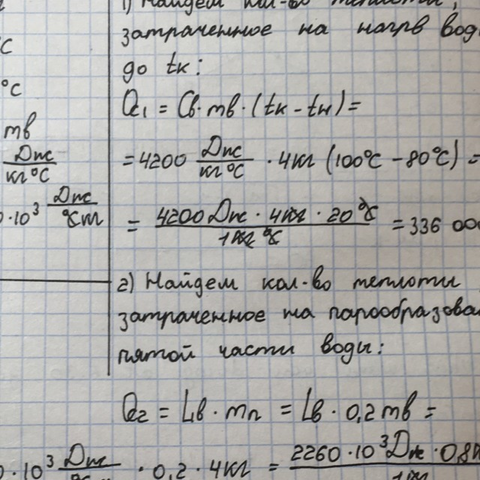 1) Найдем кол-во теплоты,
затраченное на нагрв вод
до tк:
Q1 = Cв·mв·(tк - tн) =
= 4200 Дж/кг°C · 4кг (100°C - 80°C) =
= 4200 Дж · 4кг · 20°C / 1кг °C = 336 000
2) Найдем кол-во теплоти
затраченное на парообразова
пятой части воды:
Q2 = Lв · mп = Lв · 0,2 mв =
0·10³ Дж · 0,2 · 4кг = 2260·10³ Дж · 0,8
°C
°C
mв
Дж/кг°C
0·10³ Дж